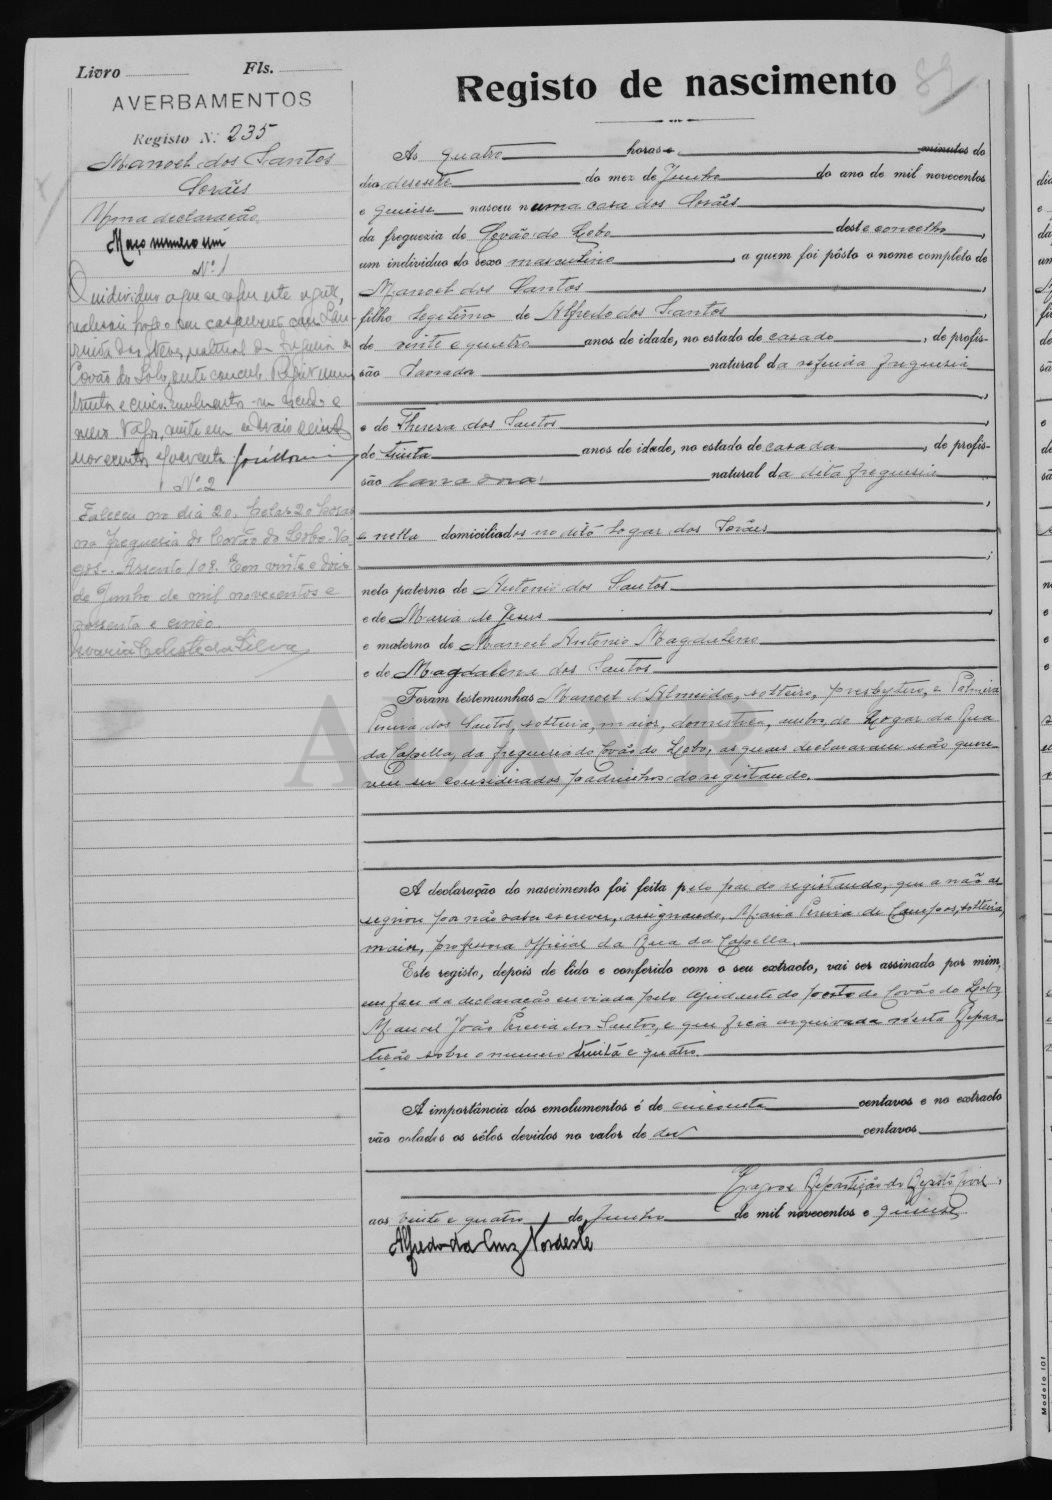 Livro Fls.
AVERBAMENTOS
Registo N.º 235
Manoel dos Santos
Sorães
Uma declaração
Maço numero um
Nº 1
O individuo a que se refere este
casamento com
natural da freguesia de
Covão do Lobo, este concelho
trinta e cinco
Vagos, vinte e um de Maio de mil
novecentos e quarenta
Nº 2
Faleceu no dia 20, pelas 20 horas
na freguesia de Covão do Lobo. Va
gos. Assento 108. Em vinte e dois
de Junho de mil novecentos e
sessenta e cinco.
Maria Celeste da Silva
Registo de nascimento
89
Ás quatro horas e minutos do
dia desesete do mez de Junho do ano de mil novecentos
e quinse nasceu numa casa dos Sorães
da freguezia de Covão do Lobo deste concelho
um individuo do sexo masculino, a quem foi pôsto o nome completo de
Manoel dos Santos
filho legitimo de Alfredo dos Santos
de vinte e quatro anos de idade, no estado de casado, de profis-
são natural da referida freguesia
e de Thereza dos Santos
de trinta anos de idade, no estado de casada, de profis-
são lavradora natural da dita freguesia
e nella domiciliados no dito logar dos Sorães
neto paterno de Antonio dos Santos
e de Maria de Jesus
e materno de Manoel Antonio Magdaleno
e de Magdalena dos Santos
Foram testemunhas Manoel d'Almeida, solteiro, presbytero, e Palmira
Pereira dos Santos, solteira, maior, domestica, ambos do Logar da Rua
da Capella, da freguesia do Covão do Lobo, as quaes declararam não quere-
rem ser considerados padrinhos do registando.
A declaração do nascimento foi feita pelo pae do registando, que a não as-
segnou por não saber escrever, assignando, Maria Pereira de Campos, solteira,
maior, professora official da Rua da Capella.
Este registo, depois de lido e conferido com o seu extracto, vai ser assinado por mim,
em face da declaração enviada pelo Ajudante do posto do Covão do Lobo,
Manoel João Pereira dos Santos, e que fica arquivada nesta Repar-
tição sobre o numero trinta e quatro.
A importância dos emolumentos é de cincoenta centavos e no extracto
vão colados os sêlos devidos no valor de dez centavos
Vagos e Repartição do Registo Civil,
aos vinte e quatro de Junho de mil novecentos e quinse
Alfredo da Cruz Nordeste
Modelo 101